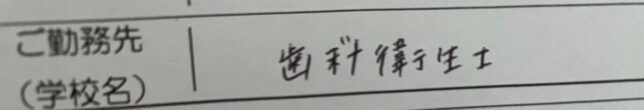 ご勤務先 歯科衛生士
(学校名)